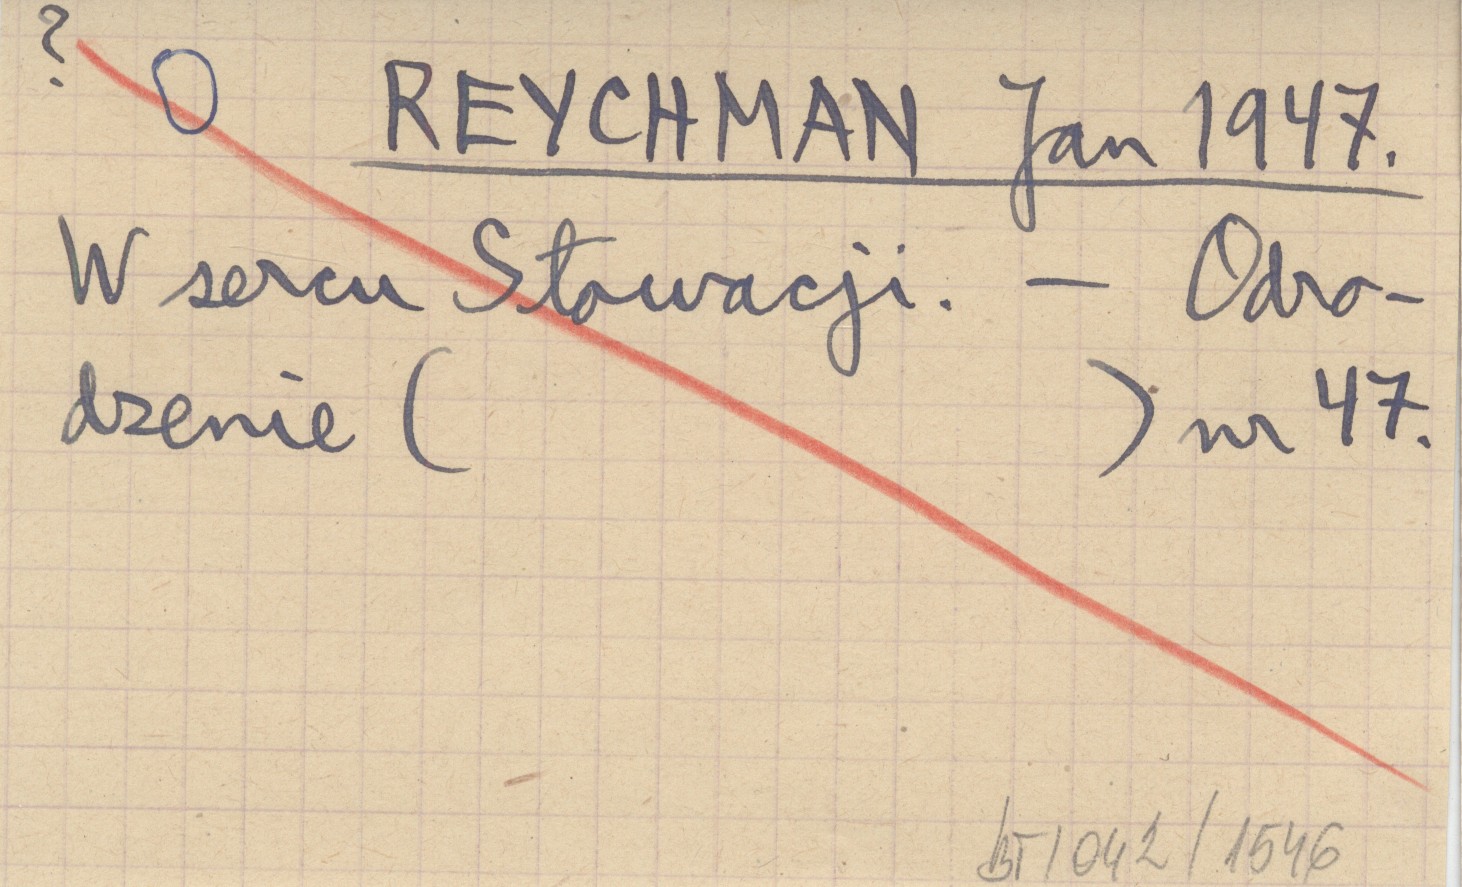 ? O REYCHMAN Jan 1947.
W sercu Słowacji. — Odro-
dzenie ( ) nr 47.
BT/042/1546